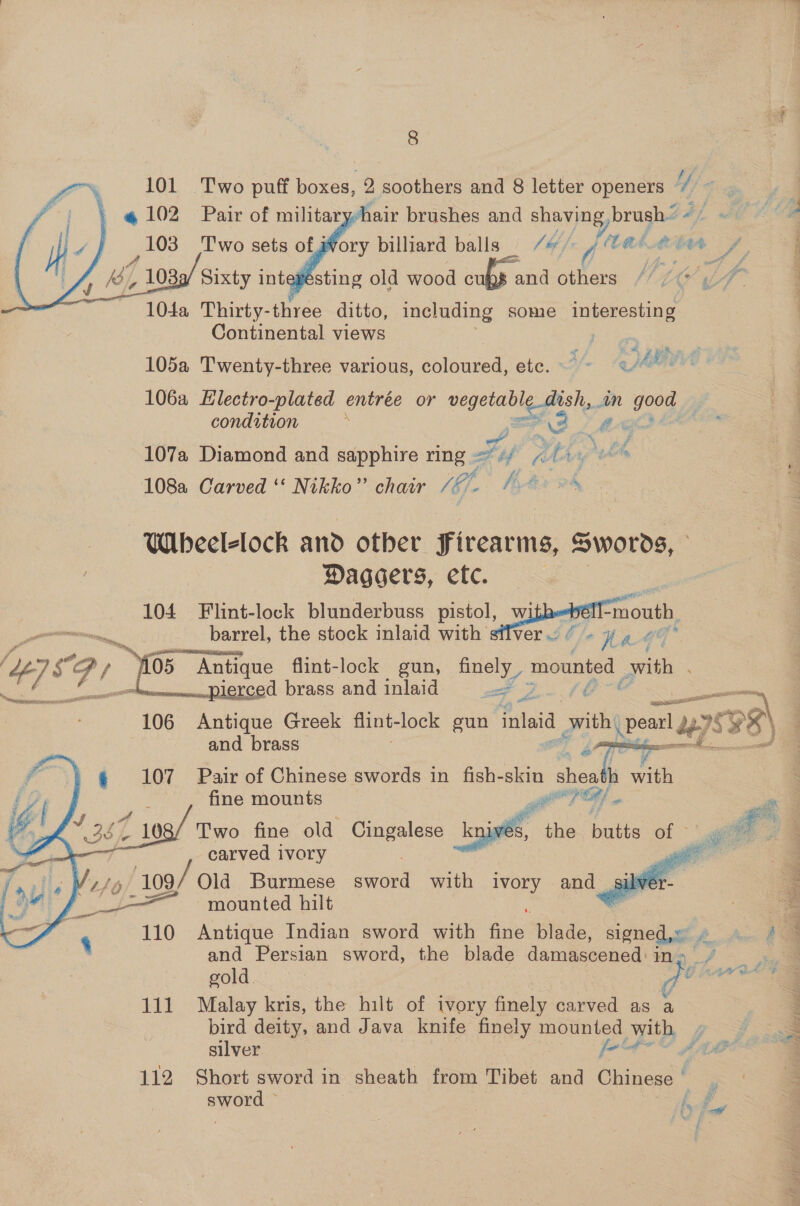 8
101 Two puff boxes, 2 soothers and 8 letter openers
102 Pair of military hair brushes and shaving brush
103 Two sets of ivory billiard balls
103a Sixty interesting old wood cuts and others
104a Thirty-three ditto, including some interesting
Continental views
105a Twenty-three various, coloured, etc.
106a Electro-plated entrée or vegetable dish, in good
condition
107a Diamond and sapphire ring
108a Carved “ Nikko” chair
Wheel-lock and other Firearms, Swords,
Daggers, etc.
104 Flint-lock blunderbuss pistol, with bell-mouth
barrel, the stock inlaid with silver
105 Antique flint-lock gun, finely mounted with
pierced brass and inlaid
106 Antique Greek flint-lock gun inlaid with pearl
and brass
107 Pair of Chinese swords in fish-skin sheath with
fine mounts
108 Two fine old Cingalese knives, the butts of
carved ivory
109 Old Burmese sword with ivory and silver-
mounted hilt
110 Antique Indian sword with fine blade, signed,
and Persian sword, the blade damascened in
gold
111 Malay kris, the hilt of ivory finely carved as a
bird deity, and Java knife finely mounted with
silver
112 Short sword in sheath from Tibet and Chinese
sword